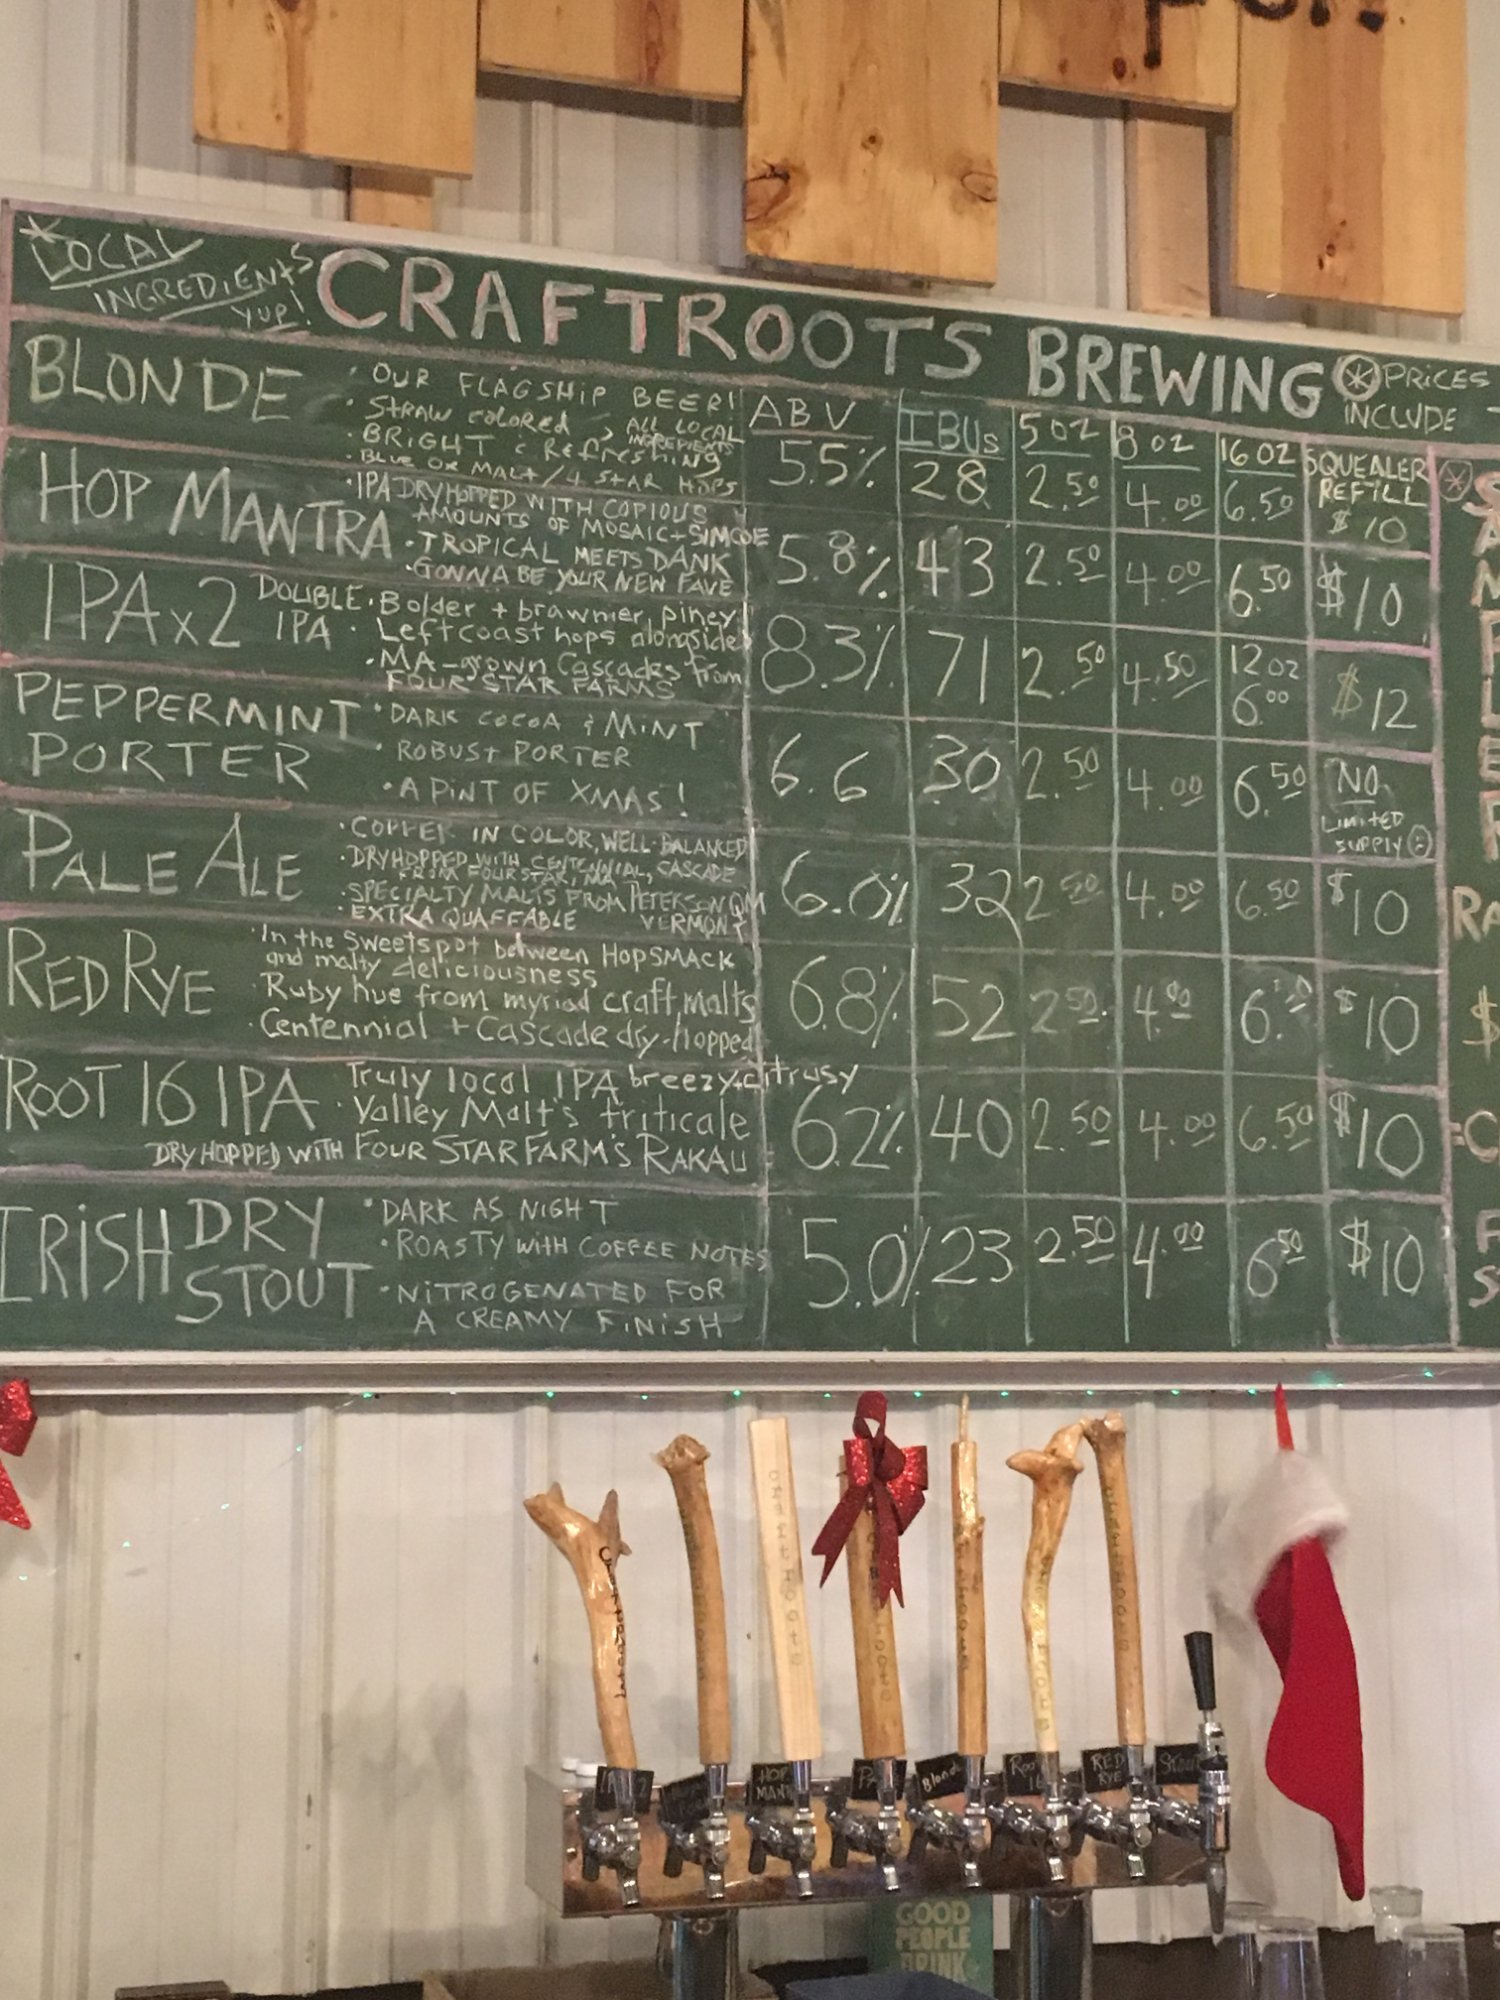 *LOCAL
INGREDIENTS
YUP!
CRAFTROOTS BREWING
* PRICES
INCLUDE
ABV
IBUs
5 OZ
8 OZ
16 OZ
SQUEALER
REFILL
BLONDE
• OUR FLAGSHIP BEER!
• STRAW COLORED, ALL LOCAL
INGREDIENTS
• BRIGHT & REFRESHING
• BLUE OX MALT / 4 STAR HOPS
5.5% 28 2.50 4.00 6.50 $10
HOP MANTRA
• IPA DRYHOPPED WITH COPIOUS
AMOUNTS OF MOSAIC + SIMCOE
• TROPICAL MEETS DANK
• GONNA BE YOUR NEW FAVE
5.8% 43 2.50 4.00 6.50 $10
IPA x 2 DOUBLE
IPA
• Bolder + brawnier, piney
• Left coast hops alongside
• MA-grown Cascades from
FOUR STAR FARMS
8.3% 71 2.50 4.50 12 OZ
6.00 $12
PEPPERMINT
PORTER
• DARK COCOA & MINT
• ROBUST PORTER
• A PINT OF XMAS!
6.6 30 2.50 4.00 6.50 NO.
LIMITED
SUPPLY
PALE ALE
• COPPER IN COLOR, WELL-BALANCED
• DRYHOPPED WITH CENTENNIAL, CASCADE
FROM FOUR STAR, MA
• SPECIALTY MALTS FROM PETERSON QM
VERMONT
• EXTRA QUAFFABLE
6.0% 32 2.50 4.00 6.50 $10
RED RYE
• In the sweetspot between HOPSMACK
and malty deliciousness
• Ruby hue from myriad craft malts
• Centennial + Cascade dry-hopped
6.8% 52 2.50 4.00 6.50 $10
ROOT 16 IPA
Truly local IPA breezy+citrusy
• Valley Malt's triticale
DRY HOPPED WITH FOUR STAR FARM'S RAKAU
6.2% 40 2.50 4.00 6.50 $10
IRISH DRY
STOUT
• DARK AS NIGHT
• ROASTY WITH COFFEE NOTES
• NITROGENATED FOR
A CREAMY FINISH
5.0% 23 2.50 4.00 6.50 $10
*
SAMPLER
RA
$
=C
F
S
HOP
MAN
Blonde
Roo
16
RED
RYE
Stout
GOOD
PEOPLE
DRINK